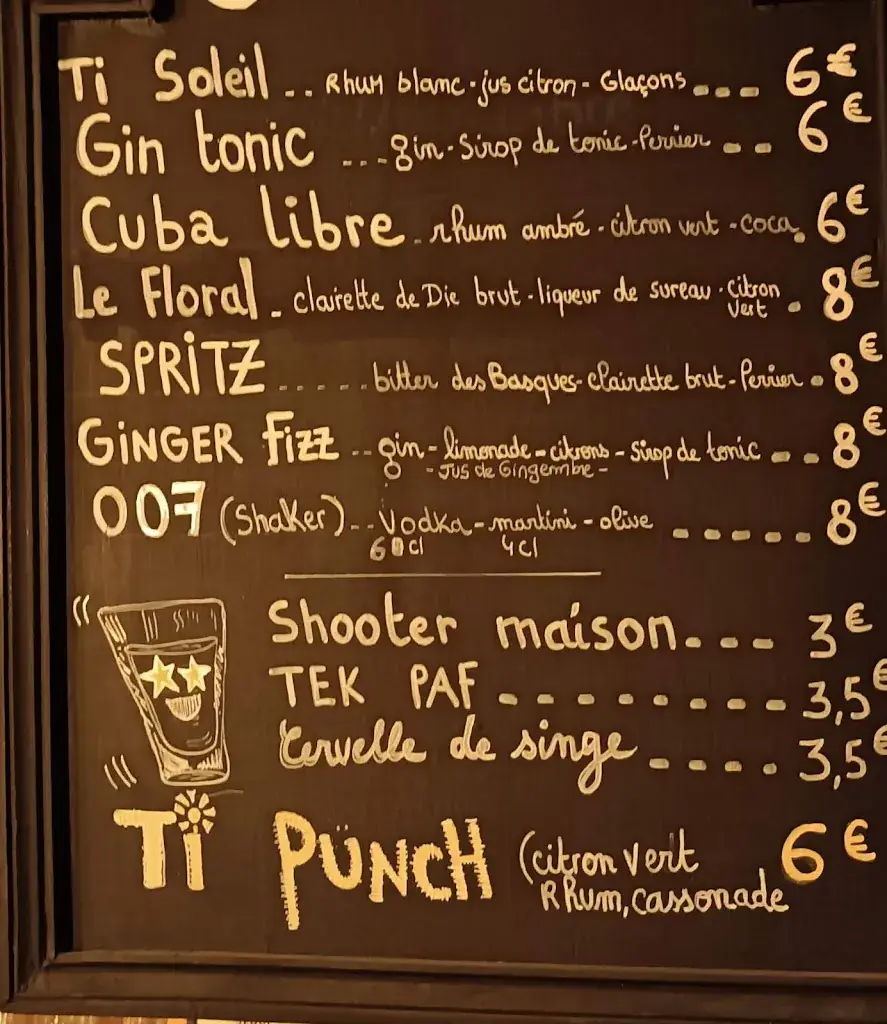 Ti Soleil .. Rhum blanc - jus citron - Glaçons .... 6€
Gin tonic ... gin - Sirop de tonic - Perrier -- 6€
Cuba libre . rhum ambré - citron vert - coca. 6€
Le Floral - clairette de Die brut - liqueur de sureau - citron vert . 8€
SPRITZ ..... bitter des Basques - clairette brut - Perrier . 8€
GiNGER Fizz .. gin - limonade - citrons - sirop de tonic -- . 8€
- Jus de Gingembre -
007 (Shaker) .. Vodka - martini - olive ..... 8€
6 cl 4 cl
Shooter maison.... 3€
TEK PAF ........ 3,5€
Cervelle de singe .... 3,5€
Ti PÜNCH (citron vert 6€
Rhum, cassonade